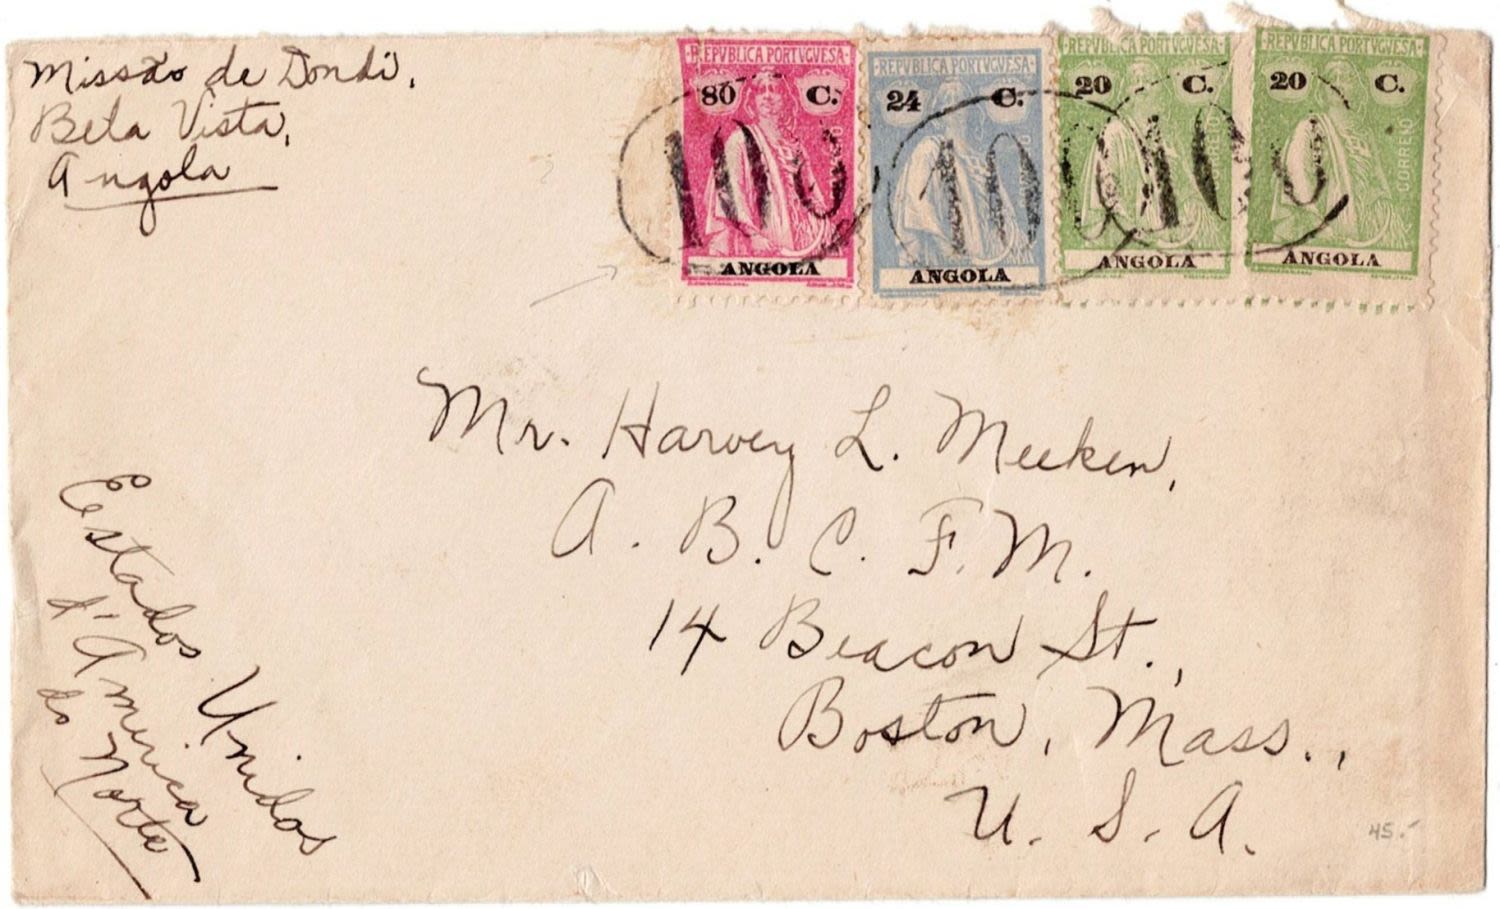 Missão de Dondi,
Bela Vista,
Angola
REPVBLICA PORTVGVESA
80 C.
ANGOLA
REPVBLICA PORTVGVESA
24 C.
ANGOLA
REPVBLICA PORTVGVESA
20 C.
CORREIO
ANGOLA
REPVBLICA PORTVGVESA
20 C.
CORREIO
ANGOLA
100
100
100
Mr. Harvey L. Meeken,
A. B. C. F. M.
14 Beacon St.,
Boston, Mass.,
U. S. A.
Estados Unidos
d'America
do Norte
45.-